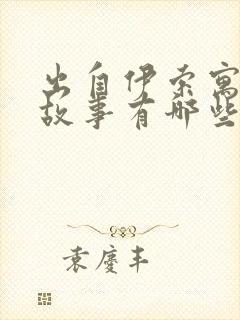 出自伊索寓
故事有哪些
袁慶丰